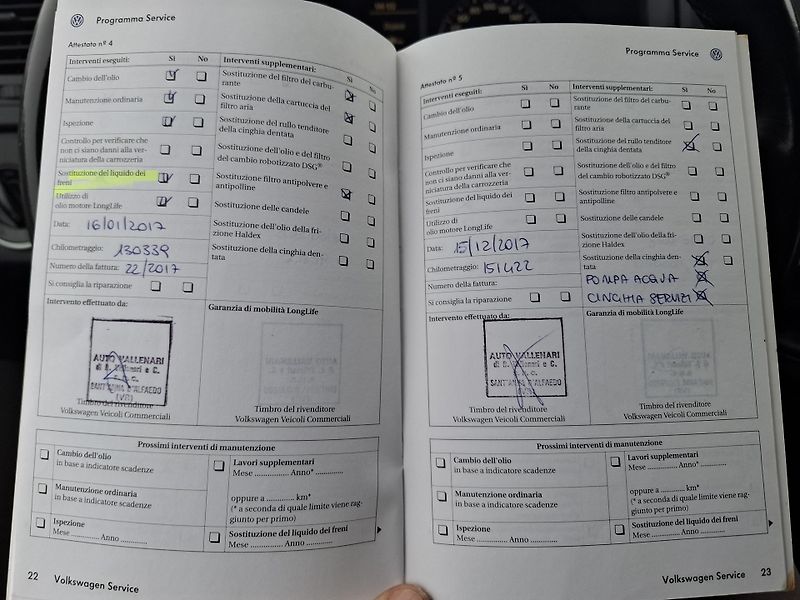 Programma Service
Attestato nº 4
Interventi eseguiti: Sì No
Cambio dell'olio
Manutenzione ordinaria
Ispezione
Controllo per verificare che
non ci siano danni alla ver-
niciatura della carrozzeria
Sostituzione del liquido dei
freni
Utilizzo di
olio motore LongLife
Data: 16/01/2017
Chilometraggio: 130339
Numero della fattura: 22/2017
Si consiglia la riparazione
Interventi supplementari: Sì No
Sostituzione del filtro del carbu-
rante
Sostituzione della cartuccia del
filtro aria
Sostituzione del rullo tenditore
della cinghia dentata
Sostituzione dell'olio e del filtro
del cambio robotizzato DSG®
Sostituzione filtro antipolvere e
antipolline
Sostituzione delle candele
Sostituzione dell'olio della fri-
zione Haldex
Sostituzione della cinghia den-
tata
Intervento effettuato da:
AUTO VALLENARI
SANT'ANNA D'ALFAEDO
(VR)
Timbro del rivenditore
Volkswagen Veicoli Commerciali
Garanzia di mobilità LongLife
Timbro del rivenditore
Volkswagen Veicoli Commerciali
Prossimi interventi di manutenzione
Cambio dell'olio
in base a indicatore scadenze
Manutenzione ordinaria
in base a indicatore scadenze
Ispezione
Mese .............. Anno ..............
Lavori supplementari
Mese .............. Anno* ..............
oppure a ............ km*
(* a seconda di quale limite viene rag-
giunto per primo)
Sostituzione del liquido dei freni
Mese .............. Anno ..............
22 Volkswagen Service
Programma Service
Attestato nº 5
Interventi eseguiti: Sì No
Cambio dell'olio
Manutenzione ordinaria
Ispezione
Controllo per verificare che
non ci siano danni alla ver-
niciatura della carrozzeria
Sostituzione del liquido dei
freni
Utilizzo di
olio motore LongLife
Data: 15/12/2017
Chilometraggio: 151422
Numero della fattura:
Si consiglia la riparazione
Interventi supplementari: Sì No
Sostituzione del filtro del carbu-
rante
Sostituzione della cartuccia del
filtro aria
Sostituzione del rullo tenditore
della cinghia dentata
Sostituzione dell'olio e del filtro
del cambio robotizzato DSG®
Sostituzione filtro antipolvere e
antipolline
Sostituzione delle candele
Sostituzione dell'olio della fri-
zione Haldex
Sostituzione della cinghia den-
tata
POMPA ACQUA
CINGHIA SERVIZI
Intervento effettuato da:
AUTO VALLENARI
di D. Vallenari e C.
s.n.c.
SANT'ANNA D'ALFAEDO
(VR)
Timbro del rivenditore
Volkswagen Veicoli Commerciali
Garanzia di mobilità LongLife
Timbro del rivenditore
Volkswagen Veicoli Commerciali
Prossimi interventi di manutenzione
Cambio dell'olio
in base a indicatore scadenze
Manutenzione ordinaria
in base a indicatore scadenze
Ispezione
Mese .............. Anno ..............
Lavori supplementari
Mese .............. Anno* ..............
oppure a ............ km*
(* a seconda di quale limite viene rag-
giunto per primo)
Sostituzione del liquido dei freni
Mese .............. Anno ..............
Volkswagen Service 23